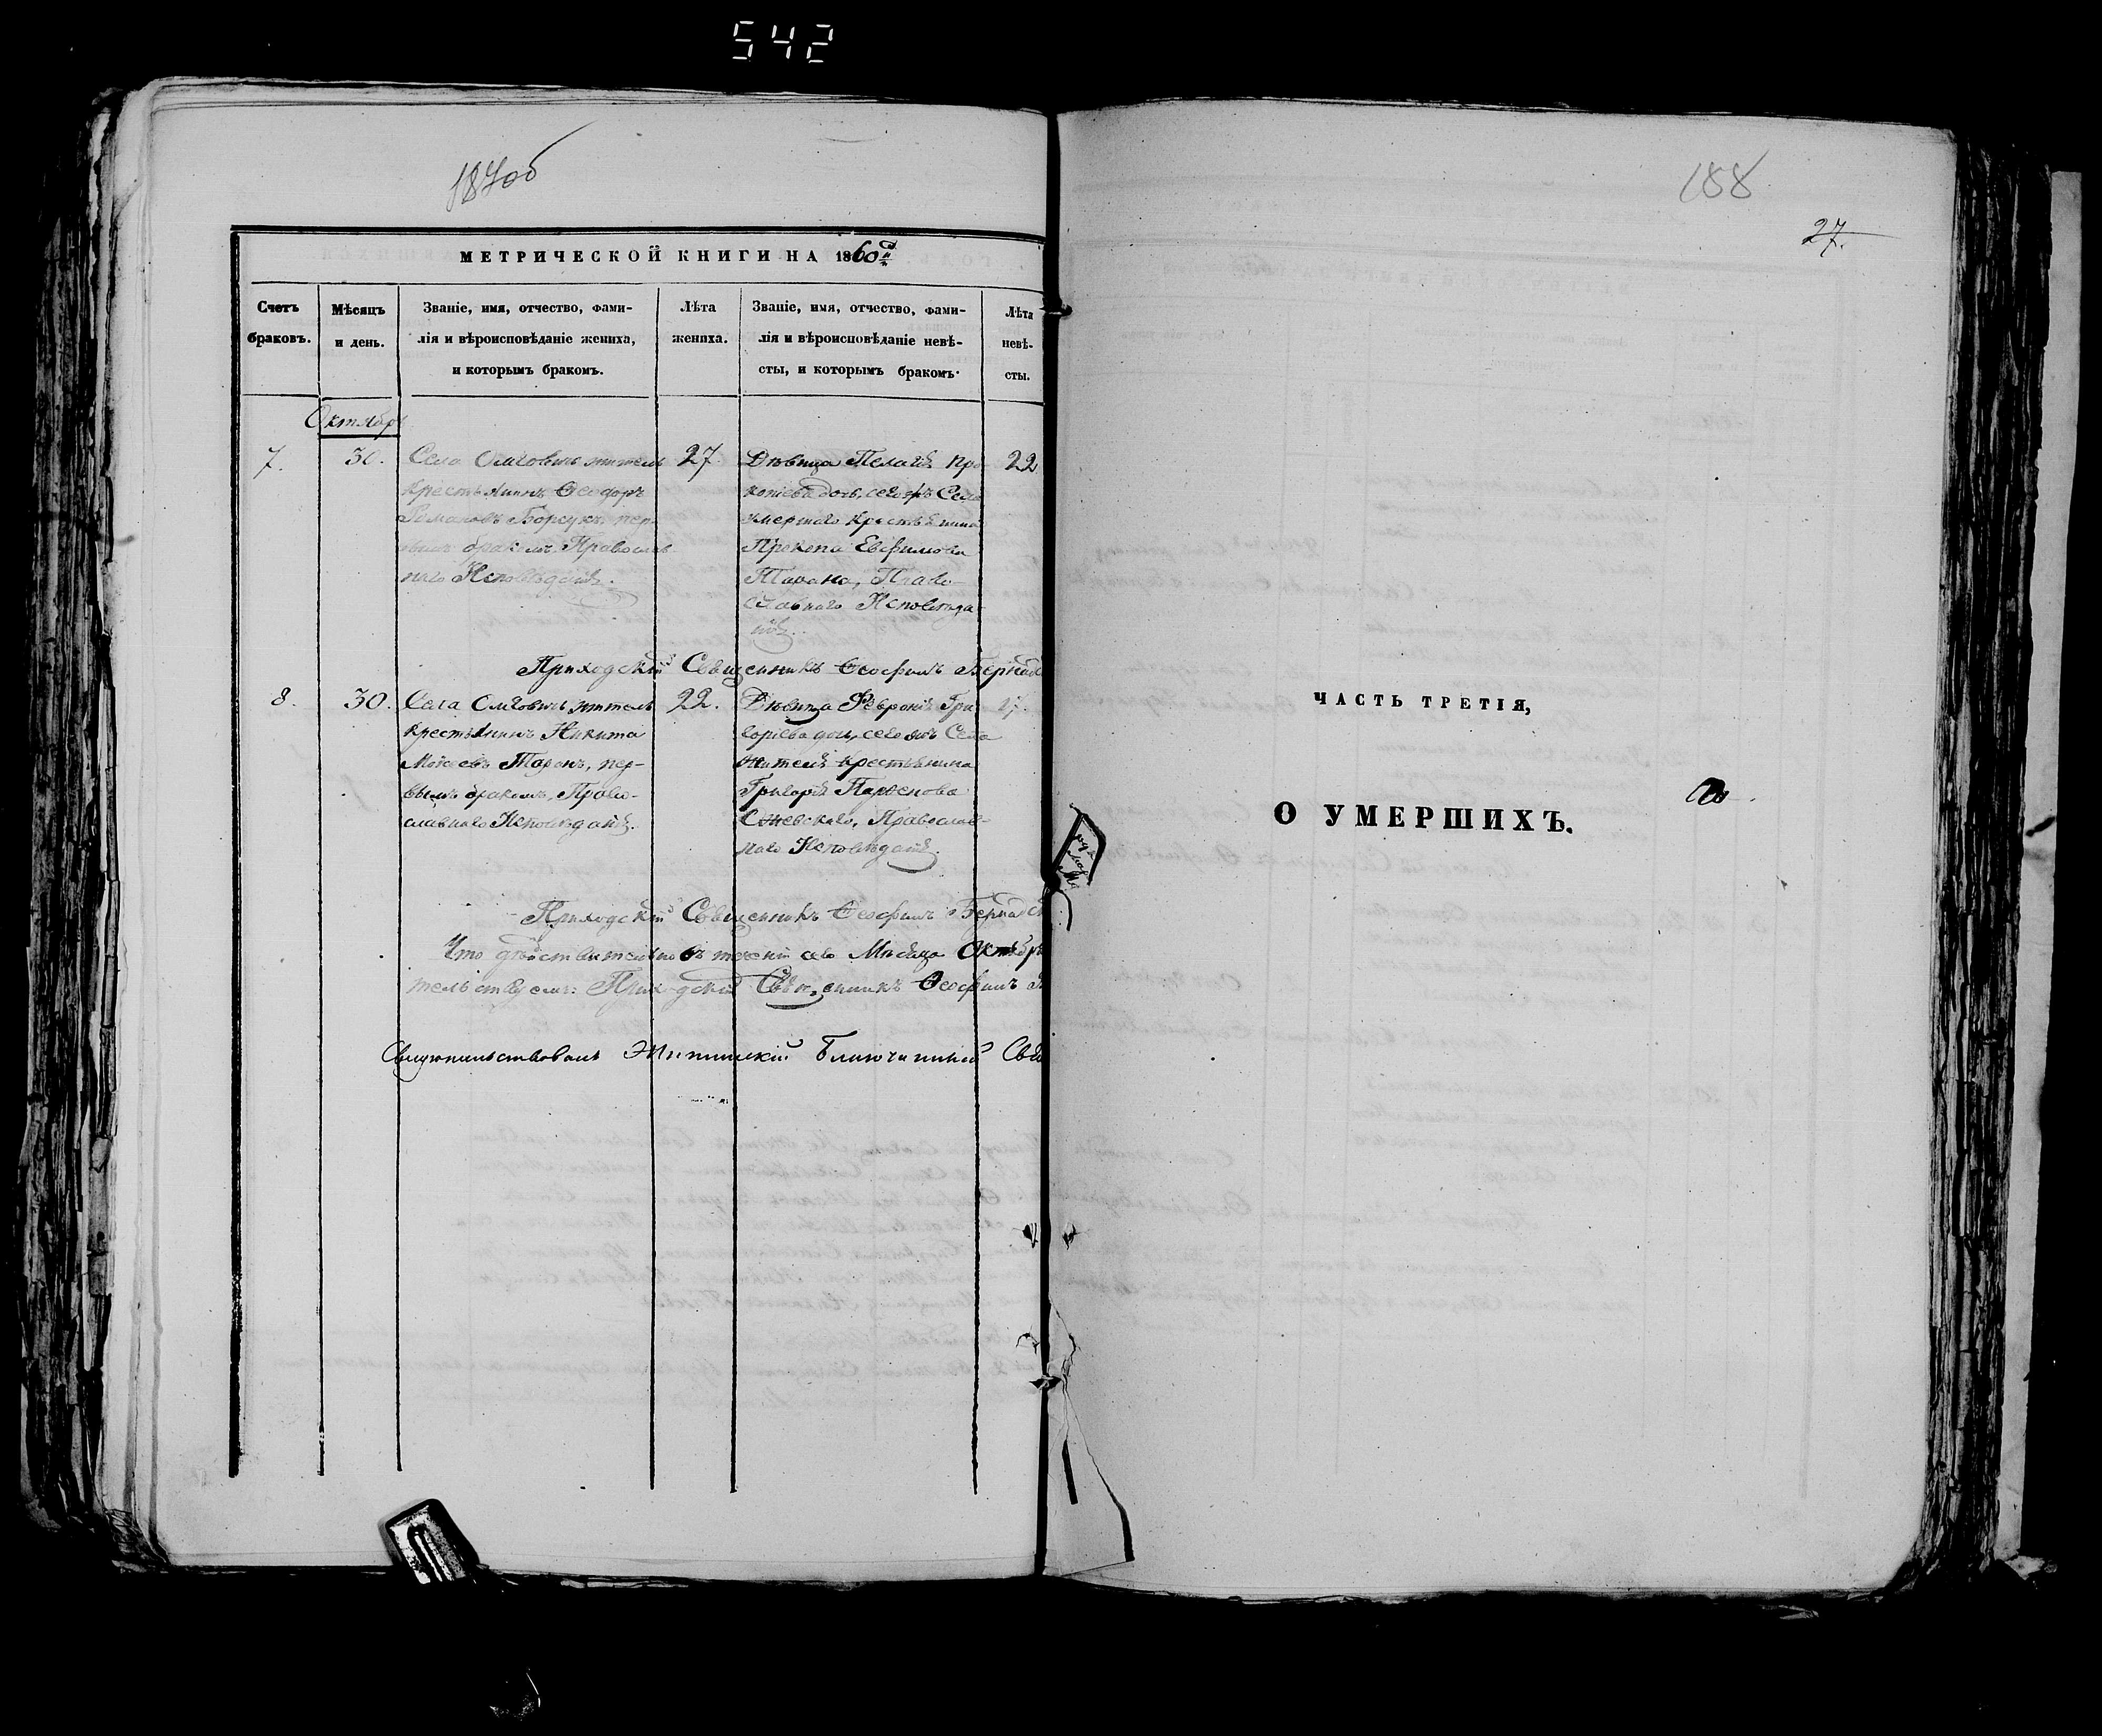 542
187об
МЕТРИЧЕСКОЙ КНИГИ НА 1860й
Счетъ браковъ.
Мѣсяцъ и день.
Званіе, имя, отчество, фами-
лія и вѣроисповѣданіе жениха,
и которымъ бракомъ.
Лѣта
жениха.
Званіе, имя, отчество, фами-
лія и вѣроисповѣданіе невѣ-
сты, и которымъ бракомъ.
Лѣта
невѣ-
сты.
Октябрь
7.
30.
Села житель
крестьянинъ Ѳеодоръ
Романовъ Борсукъ пер-
вымъ бракомъ Православ
наго Исповѣданія.
27
Дѣвица Пелагія Про
копіева дочь, сегожъ Села
умершаго крестьянина
Прокопа Евфимова
Тарана, Право-
славнаго Исповѣда-
нія.
22
Приходскій Священникъ Ѳеофилъ
8.
30.
Села житель
крестьянинъ Никита
Моисеевъ Таранъ, пер-
вымъ бракомъ, Право-
славнаго Исповѣданія.
22.
Дѣвица Февронія Гри
горіева дочь, сегожъ Села
жителя крестьянина
Григорія Парѳенова
Православ-
наго Исповѣданія.
17.
Приходскій Священникъ Ѳеофилъ
Что дѣйствительно въ теченіи сего Мѣсяца Октябр
тельствуемъ: Приходскій Священникъ Ѳеофилъ
Свидѣтельствовалъ Благочинный
188
27.
ЧАСТЬ ТРЕТІЯ,
О УМЕРШИХЪ.